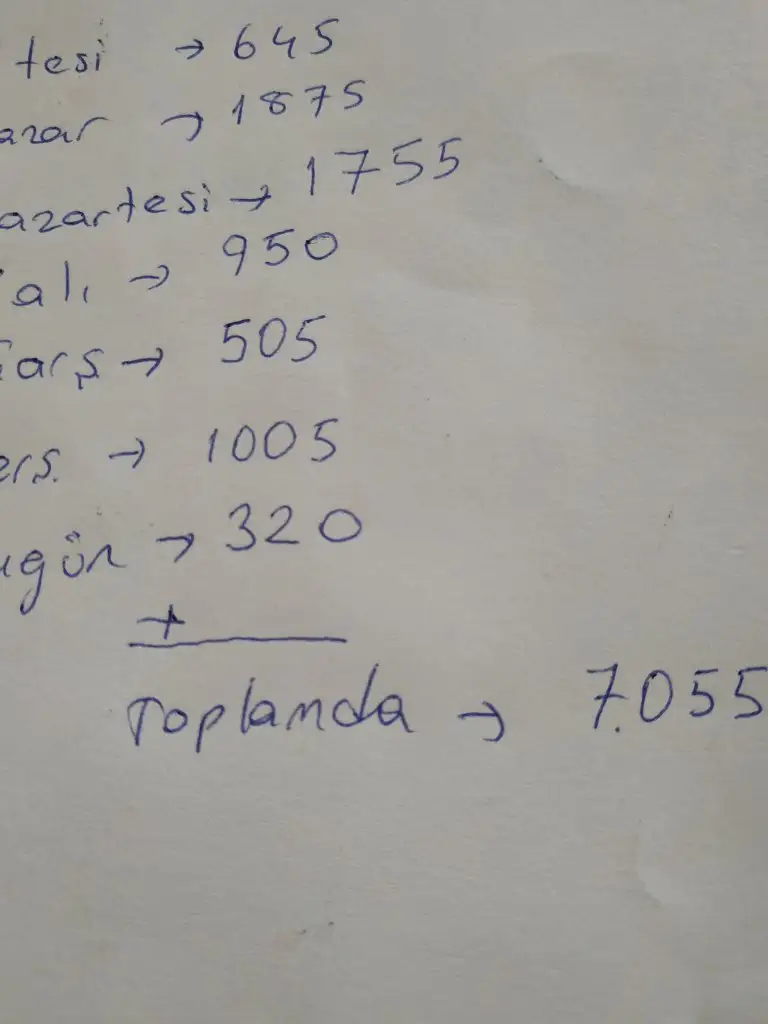 tesi → 645
azar → 1875
azartesi → 1755
alı → 950
arş → 505
ers. → 1005
ugün → 320
+
Toplamda → 7.055